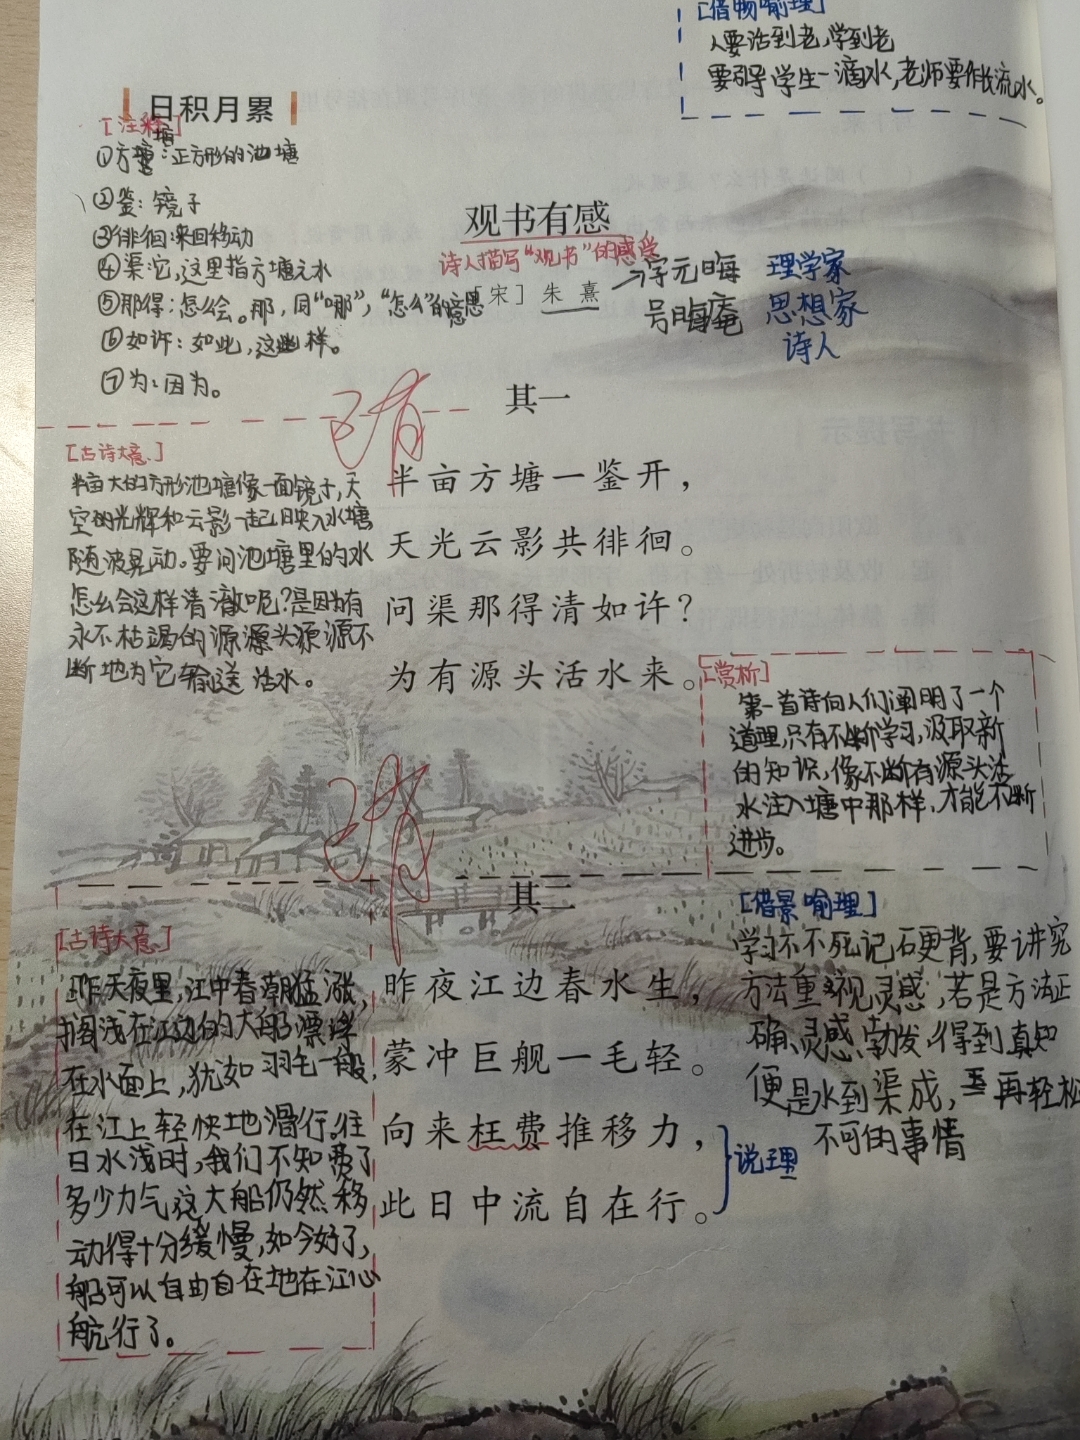 [借物喻理]
人要活到老,学到老
要求学生一滴水,老师要作长流水。
日积月累
[注释]
①方塘:正方形的池塘
②鉴:镜子
③徘徊:来回移动
④渠:它,这里指方塘之水
⑤那得:怎么会。那,同“哪”,“怎么”的意思
⑥如许:如此,这样。
⑦为:因为。
观书有感
诗人描写“观书”的感受
[宋]朱熹
→字元晦
号晦庵
理学家
思想家
诗人
其一
[古诗大意]
半亩大的方形池塘像一面镜子,天
空的光辉和云影一起映入水塘
随波晃动。要问池塘里的水
怎么会这样清澈呢?是因为有
永不枯竭的源源头源源不
断地为它输送活水。
半亩方塘一鉴开,
天光云影共徘徊。
问渠那得清如许?
为有源头活水来。
[赏析]
第一首诗向人们阐明了一个
道理,只有不断学习,汲取新
的知识,像不断有源头活
水注入塘中那样,才能不断
进步。
其二
[古诗大意]
昨天夜里,江中春潮猛涨,
搁浅在江边的大船漂浮
在水面上,犹如羽毛一般,
在江上轻快地滑行。往
日水浅时,我们不知费了
多少力气,这大船仍然移
动得十分缓慢,如今好了,
船可以自由自在地在江心
航行了。
昨夜江边春水生,
蒙冲巨舰一毛轻。
向来枉费推移力,
此日中流自在行。
说理
[借景喻理]
学习不不死记硬背,要讲究
方法重视灵感,若是方法正
确、灵感勃发,得到真知
便是水到渠成,再轻松
不可的事情